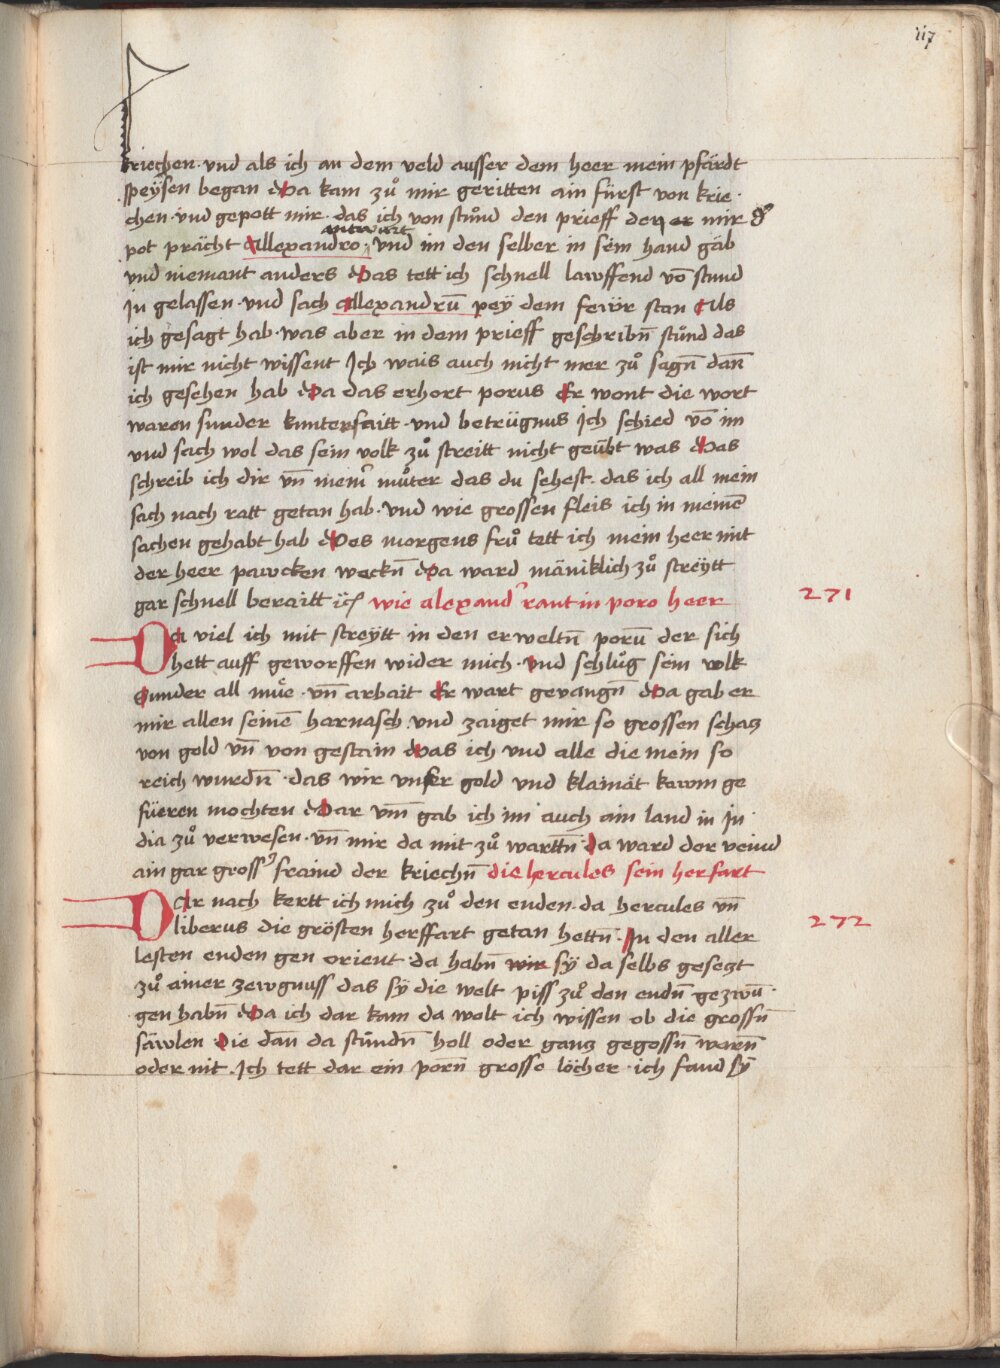 117
kriechen · vnd als ich an dem veld ausser dem heer mein pfärdt
speÿsen began Da kam zů mir geritten ain fürst von krie ·
chen · vnd gepott mir · das ich von stůnd den prieff den er mir
antwurt
pot prächt Allexandro · vnd im den selber in sein hand gäb
vnd niemant anders Das tett ich schnell lawffend vō stund
In gelassen · vnd sach allexandrū peÿ dem fewr stan Als
ich gesagt hab · was aber in dem prieff geschribn̄ stůnd das
ist mir nicht wissent Ich wais auch nicht mer zů sagn̄ dan̄
ich gesehen hab Da das erhort porus Er wont die wort
waren sunder kunterfaitt · vnd betrügnus Ich schied vō im
vnd sach wol das sein volk zů streitt nicht geübt was Das
schreib ich dir vn̄ meinr̄ můter das du sehest · das ich all mein
sach nach ratt getan hab · vnd wie grossen fleis ich in meinē
sachen gehabt hab Des morgens frů tett ich mein heer mit
der heer pawcken weckn̄ Da ward mäniklich zů streÿtt
gar schnell beraitt ıc̄ wie alexand' rant in poro heer
271
Da viel ich mit streÿtt in den erweltn̄ porū der sich
hett auff geworffen wider mich · vnd schlůg sein volk
Sunder all müe · vn̄ arbait Er wart gevangn̄ Da gab er
mir allen seinē harnasch vnd zaiget mir so grossen schacz
von gold vn̄ von gestain Das ich vnd alle die mein so
reich wurdn̄ · das wir vnser gold vnd klainät kawm ge
füeren mochten Dar vm̄ gab ich im auch ain land in In
dia zů verwesen · vn̄ mir da mit zů wartn̄ Da ward der veind
ain gar gross' fraind der kriechn̄ die hercules sein herfart
Dar nach kertt ich mich zů den enden · da hercules vn̄
272
liberus die grösten herffart getan hettn̄ · In den aller
lesten enden gen orient · da habn̄ wir sÿ da selbs geseczt
zů ainer zewgnuss das sÿ die welt piss zů den endn̄ gezwū ·
gen habn̄ Da ich dar kam da wolt ich wissen ob die grossn̄
säwlen Die dan̄ da stůndn̄ holl oder gancz gegossn̄ warn̄
oder nit · Ich tett dar ein porn̄ grosse löcher · ich fand sÿ